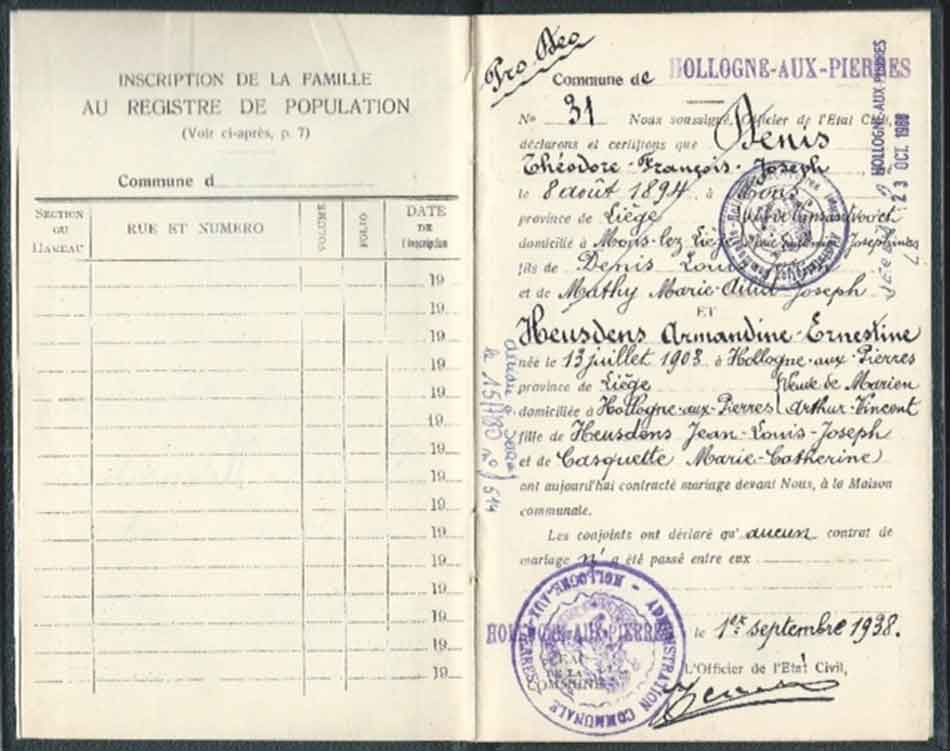 INSCRIPTION DE LA FAMILLE
AU REGISTRE DE POPULATION
(Voir ci-après, p. 7)
Commune d
SECTION OU HAMEAU
RUE ET NUMERO
VOLUME
FOLIO
DATE DE l'inscription
19
19
19
19
19
19
19
19
19
19
19
19
19
19
19
Pro Deo
Commune de HOLLOGNE-AUX-PIERRES
No 31 Nous soussigné, Officier de l'Etat Civil,
déclarons et certifions que Denis
Théodore-François-Joseph
le 8 août 1894 à Mons
province de Liège
domicilié à Mons-lez-Liège
fils de Denis Louis
et de Mathy Marie Joseph
ET
Heusdens Armandine-Ernestine
née le 13 juillet 1903 à Hollogne-aux-Pierres
province de Liège Veuve de Marien
domiciliée à Hollogne-aux-Pierres Arthur-Vincent
fille de Heusdens Jean-Louis-Joseph
et de Casquette Marie-Catherine
ont aujourd'hui contracté mariage devant Nous, à la Maison
communale.
Les conjoints ont déclaré qu'aucun contrat de
mariage n'a été passé entre eux
HOLLOGNE-AUX-PIERRES le 1er septembre 1938.
L'Officier de l'Etat Civil,
SCEAU
DE LA
COMMUNE
ADMINISTRATION COMMUNALE - HOLLOGNE-AUX-PIERRES
HOLLOGNE-AUX-PIERRES
23 OCT. 1980